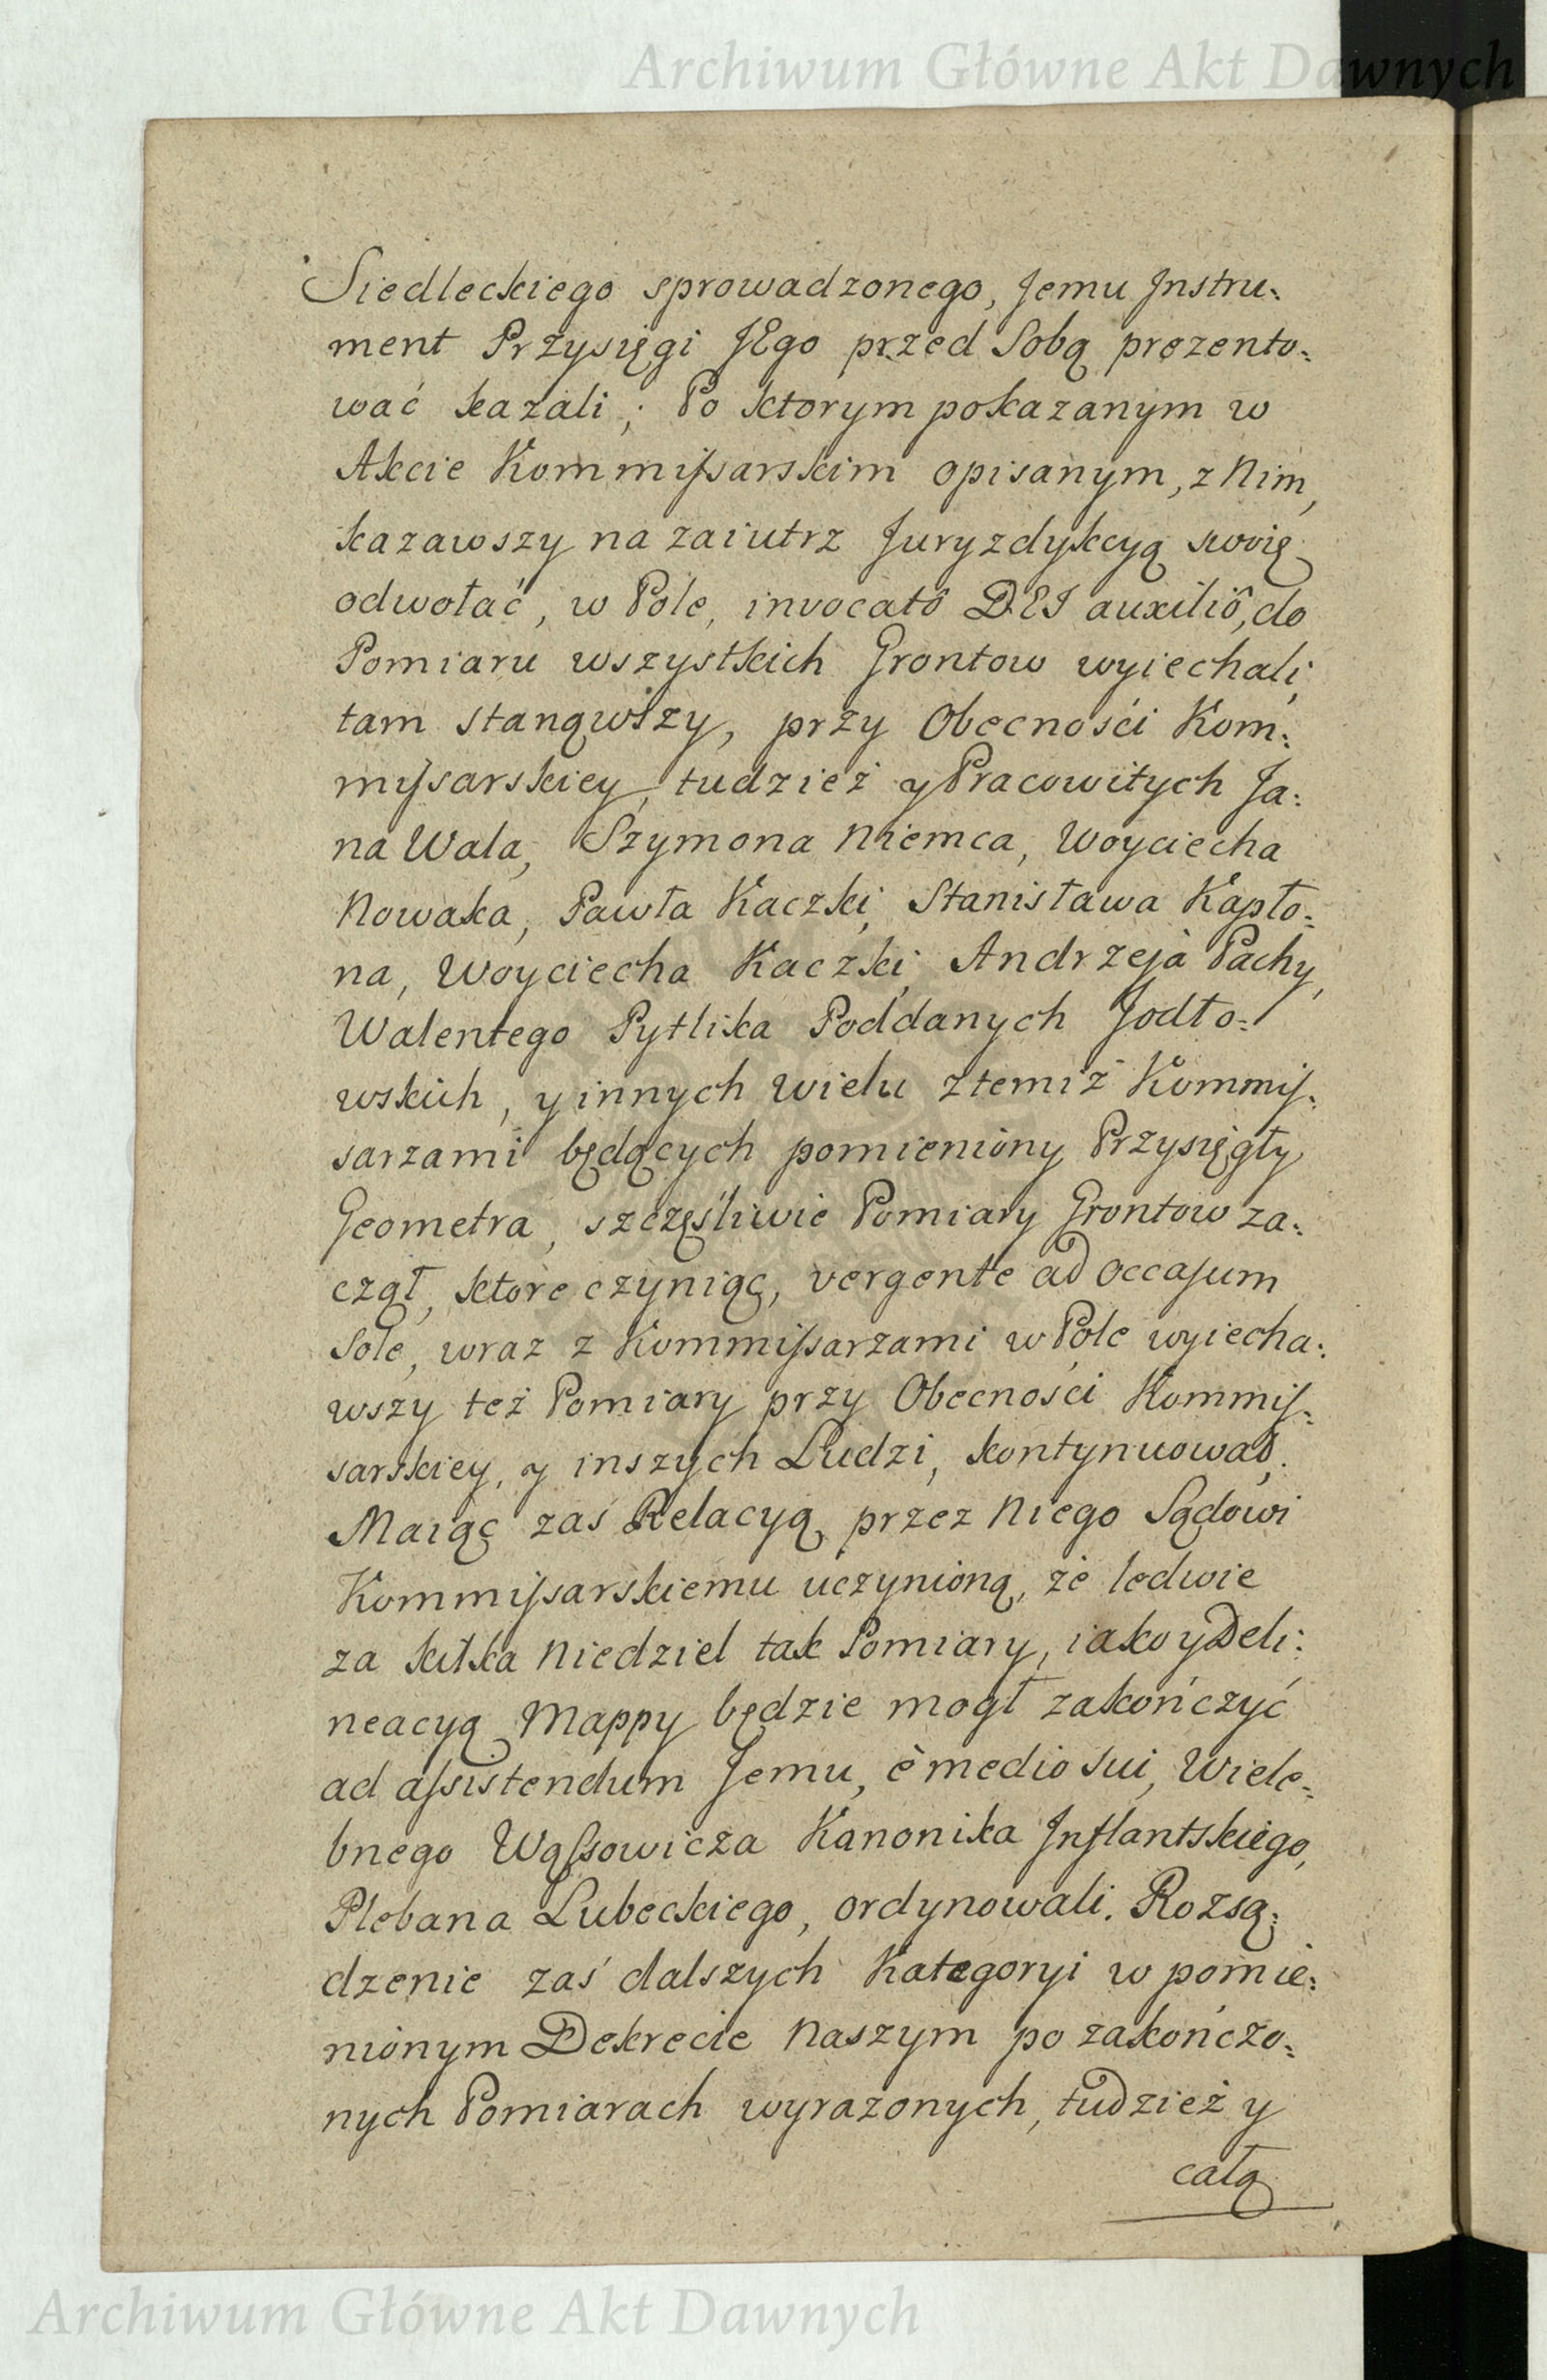 Archiwum Główne Akt Dawnych
Siedleckiego sprowadzonego, Jemu Jnstru:
ment Przysięgi JEgo przed Sobą prezento:
wać kazali; Po ktorym pokazanym w
Akcie Kommiſsarskim opisanym, z Nim,
kazawszy na zaiutrz Juryzdykcyą swoię
odwołać, w Pole, invocatô DEI auxiliô, do
Pomiaru wszystkich Grontow wyiechali,
tam stanąwszy, przy Obecności Kom:
miſsarskiey, tudzież y Pracowitych Ja:
na Wala, Szymona Niemca, Woyciecha
Nowaka, Pawła Kaczki, Stanisława Kapło:
na, Woyciecha Kaczki, Andrzeja Pachy,
Walentego Pytlika Poddanych Jodło:
wskich, y innych wielu z temiż Kommiſ:
sarzami będących pomieniony Przysięgły
Geometra, szczęśliwie Pomiary Grontow za:
czął, ktore czyniąc, vergente ad occaſum
Sole, wraz z Kommiſsarzami w Pole wyiecha:
wszy też Pomiary przy Obecności Kommiſ:
sarskiey, y inszych Ludzi, kontynuował,
Maiąc zaś Relacyą przez Niego Sądowi
Kommiſsarskiemu uczynioną, że ledwie
za kilka Niedziel tak Pomiary, iako y Deli:
neacyą Mappy będzie mogł zakończyć
ad aſsistendum Jemu, è medio sui, Wiele:
bnego Wąſsowicza Kanonika Jnflantskiego,
Plebana Lubeckiego, ordynowali. Rozsą:
dzenie zaś dalszych Kategoryi w pomie:
nionym Dekrecie Naszym po zakończo:
nych Pomiarach wyrazonych, tudzież y
całą
Archiwum Główne Akt Dawnych